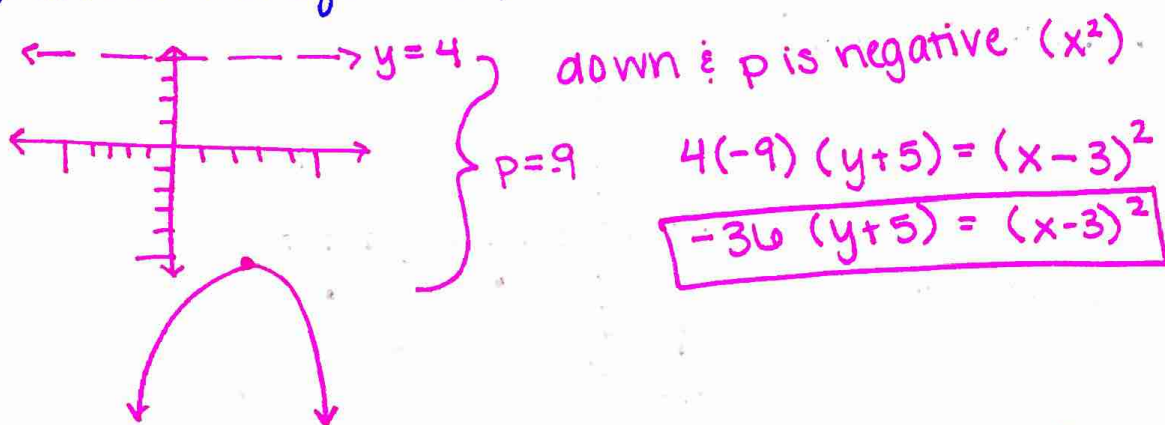 y = 4
down & p is negative (x²)
p = 9
4(-9) (y+5) = (x-3)²
-36 (y+5) = (x-3)²